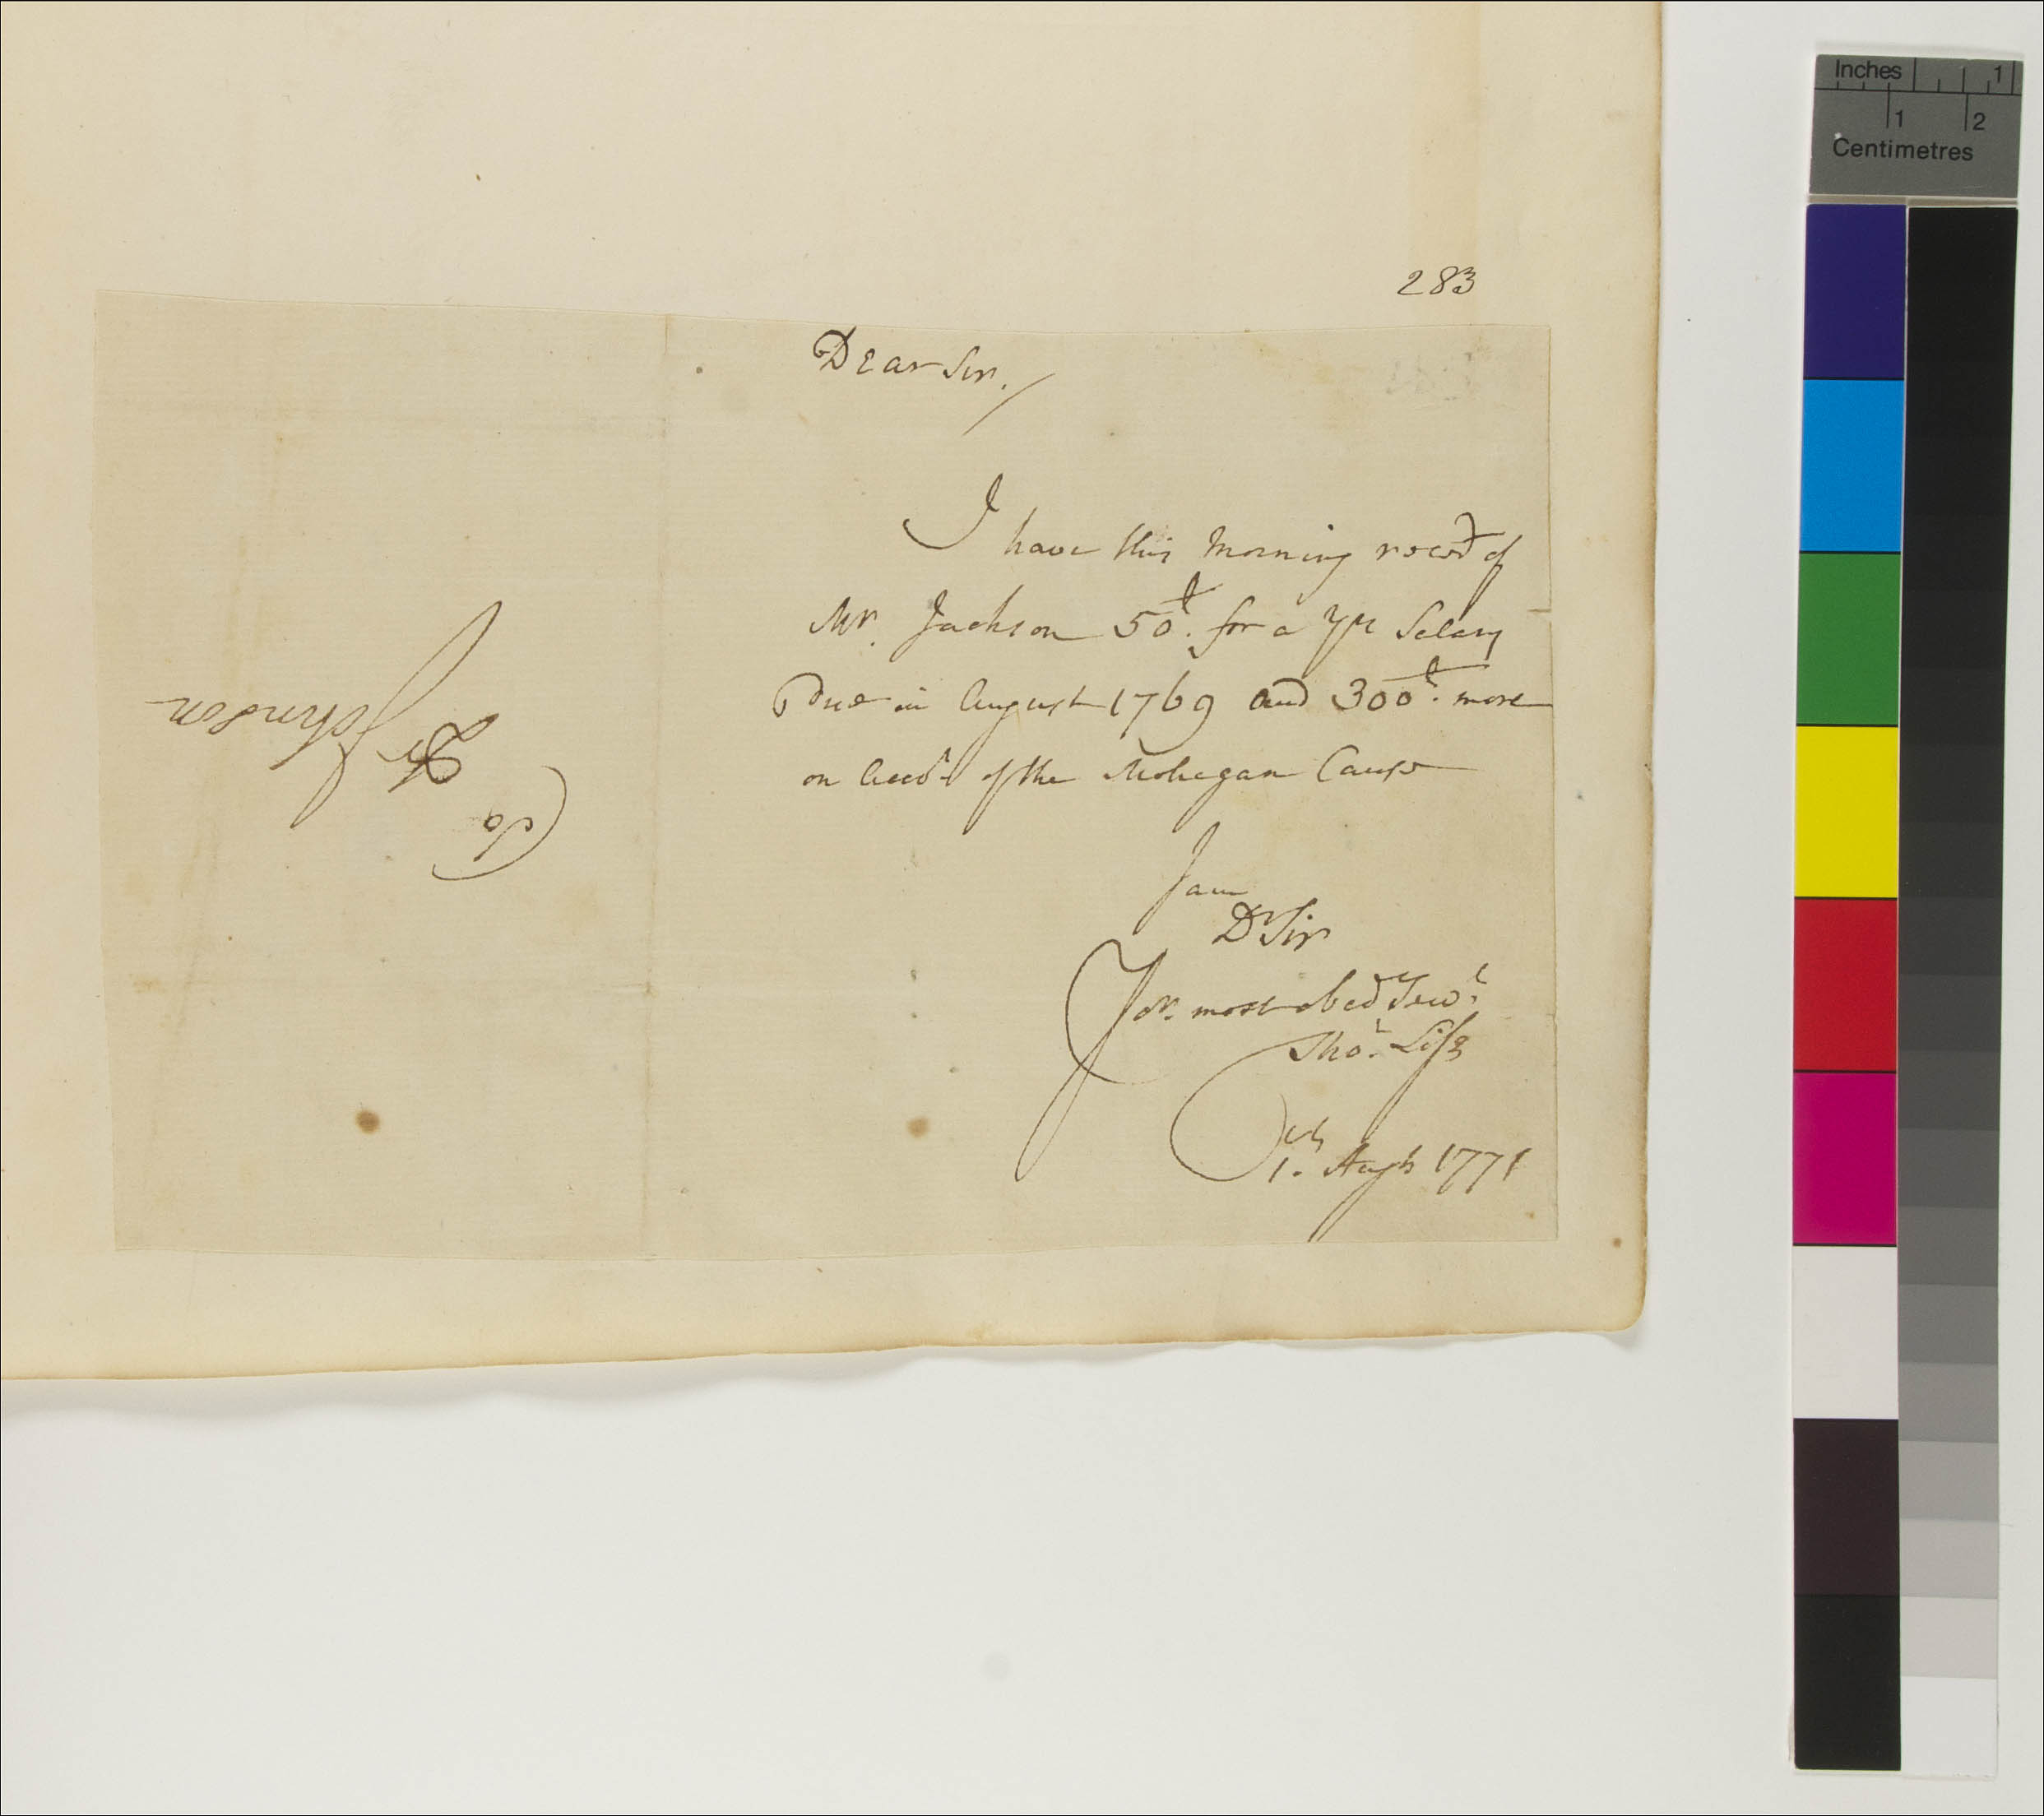 283
Dear Sir,
I have this Morning recd of
Mr. Jackson 50£. for a Yrs Salary
Due in August 1769 and 300£. more
on Acco.t of the Mohegan Cause
I am
Dr Sir
Yor. most obed Serv.t
Tho.s Life
1.st Augt 1771
To
Dr Johnson
Inches 1
1 2
Centimetres